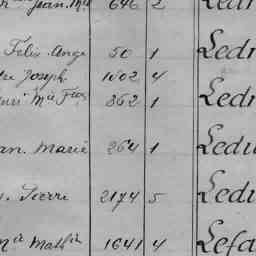 Jean. Mie 646 2 Ledr
Felix. Ange 50 1 Ledr
Joseph 1002 4
Mie Fçois 862 1 Ledr
an. Marie 264 1 Ledu
Pierre 2174 5 Ledu
Mie Math 1641 4 Lefa